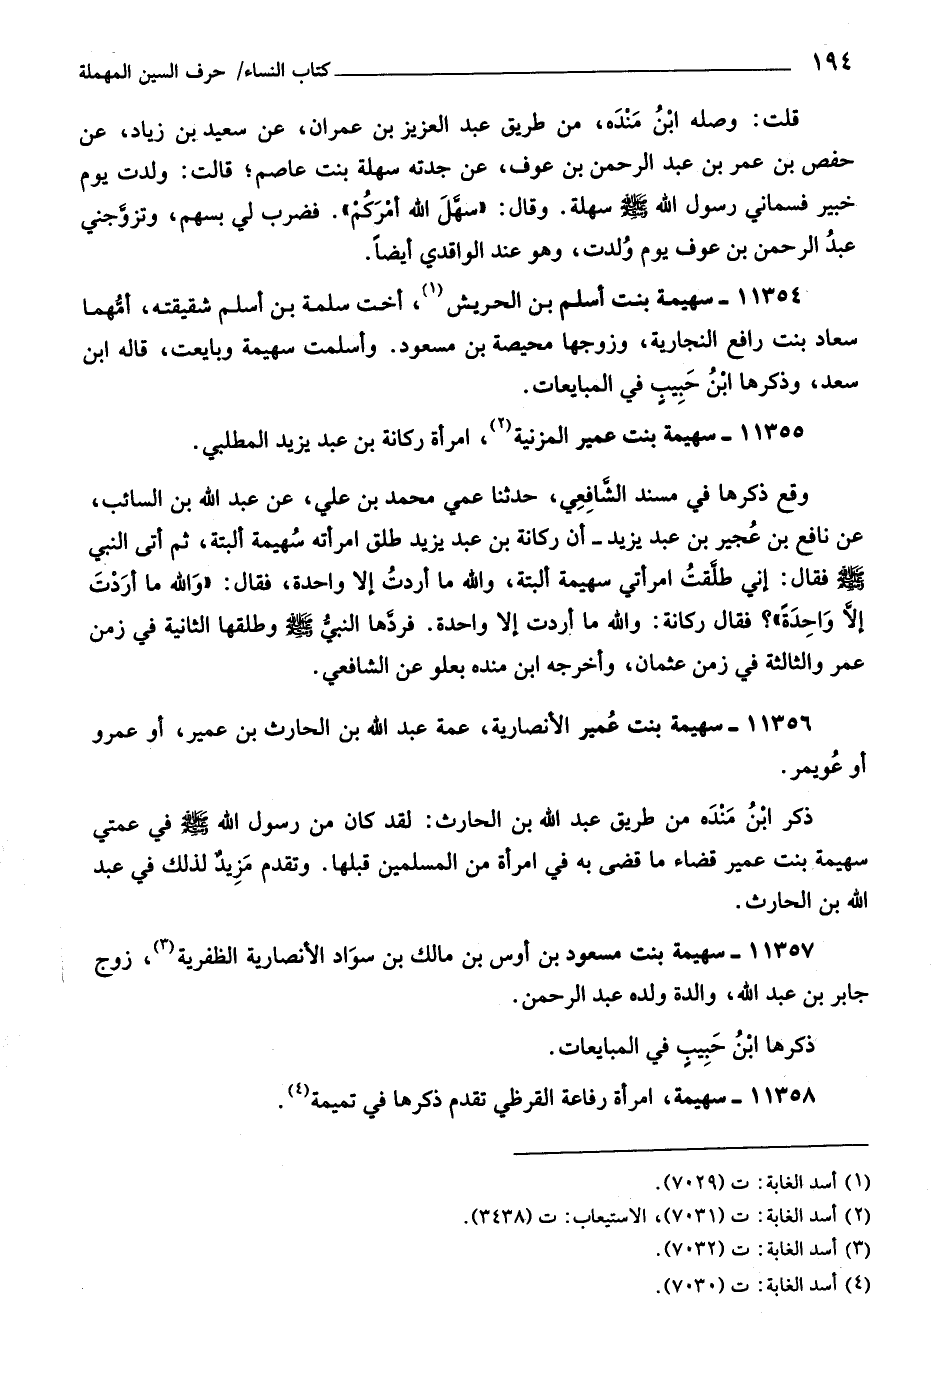 ١٩٤ كتاب النساء/ حرف السين المهملة
قلت: وصله ابْنُ مَنْدَه، من طريق عبد العزيز بن عمران، عن سعيد بن زياد، عن
حفص بن عمر بن عبد الرحمن بن عوف، عن جدته سهلة بنت عاصم؛ قالت: ولدت يوم
خيبر فسماني رسول الله ﷺ سهلة. وقال: «سهَّلَ الله أمْرَكُمْ». فضرب لي بسهم، وتزوَّجني
عبدُ الرحمن بن عوف يوم وُلدت، وهو عند الواقدي أيضاً.
١١٣٥٤ ـ سهيمة بنت أسلم بن الحريش(١)، أخت سلمة بن أسلم شقيقته، أمُّهما
سعاد بنت رافع النجارية، وزوجها محيصة بن مسعود. وأسلمت سهيمة وبايعت، قاله ابن
سعد، وذكرها ابْنُ حَبِيبٍ في المبايعات.
١١٣٥٥ ـ سهيمة بنت عمير المزنية(٢)، امرأة ركانة بن عبد يزيد المطلبي.
وقع ذكرها في مسند الشَّافِعِي، حدثنا عمي محمد بن علي، عن عبد الله بن السائب،
عن نافع بن عُجير بن عبد يزيد ـ أن ركانة بن عبد يزيد طلق امرأته سُهيمة ألبتة، ثم أتى النبي
ﷺ فقال: إني طلَّقتُ امرأتي سهيمة ألبتة، والله ما أردتُ إلا واحدة، فقال: «وَالله ما أرَدْتَ
إلاَّ وَاحِدَةً»؟ فقال ركانة: والله ما أردت إلا واحدة. فردَّها النبيُّ ﷺ وطلقها الثانية في زمن
عمر والثالثة في زمن عثمان، وأخرجه ابن منده بعلو عن الشافعي.
١١٣٥٦ ـ سهيمة بنت عُمير الأنصارية، عمة عبد الله بن الحارث بن عمير، أو عمرو
أو عُويمر.
ذكر ابْنُ مَنْدَه من طريق عبد الله بن الحارث: لقد كان من رسول الله ﷺ في عمتي
سهيمة بنت عمير قضاء ما قضى به في امرأة من المسلمين قبلها. وتقدم مَزِيدٌ لذلك في عبد
الله بن الحارث.
١١٣٥٧ ـ سهيمة بنت مسعود بن أوس بن مالك بن سوَاد الأنصارية الظفرية(٣)، زوج
جابر بن عبد الله، والدة ولده عبد الرحمن.
ذكرها ابْنُ حَبِيبٍ في المبايعات.
١١٣٥٨ ـ سهيمة، امرأة رفاعة القرظي تقدم ذكرها في تميمة(٤).
(١) أسد الغابة: ت (٧٠٢٩).
(٢) أسد الغابة: ت (٧٠٣١)، الاستيعاب: ت (٣٤٣٨).
(٣) أسد الغابة: ت (٧٠٣٢).
(٤) أسد الغابة: ت (٧٠٣٠).